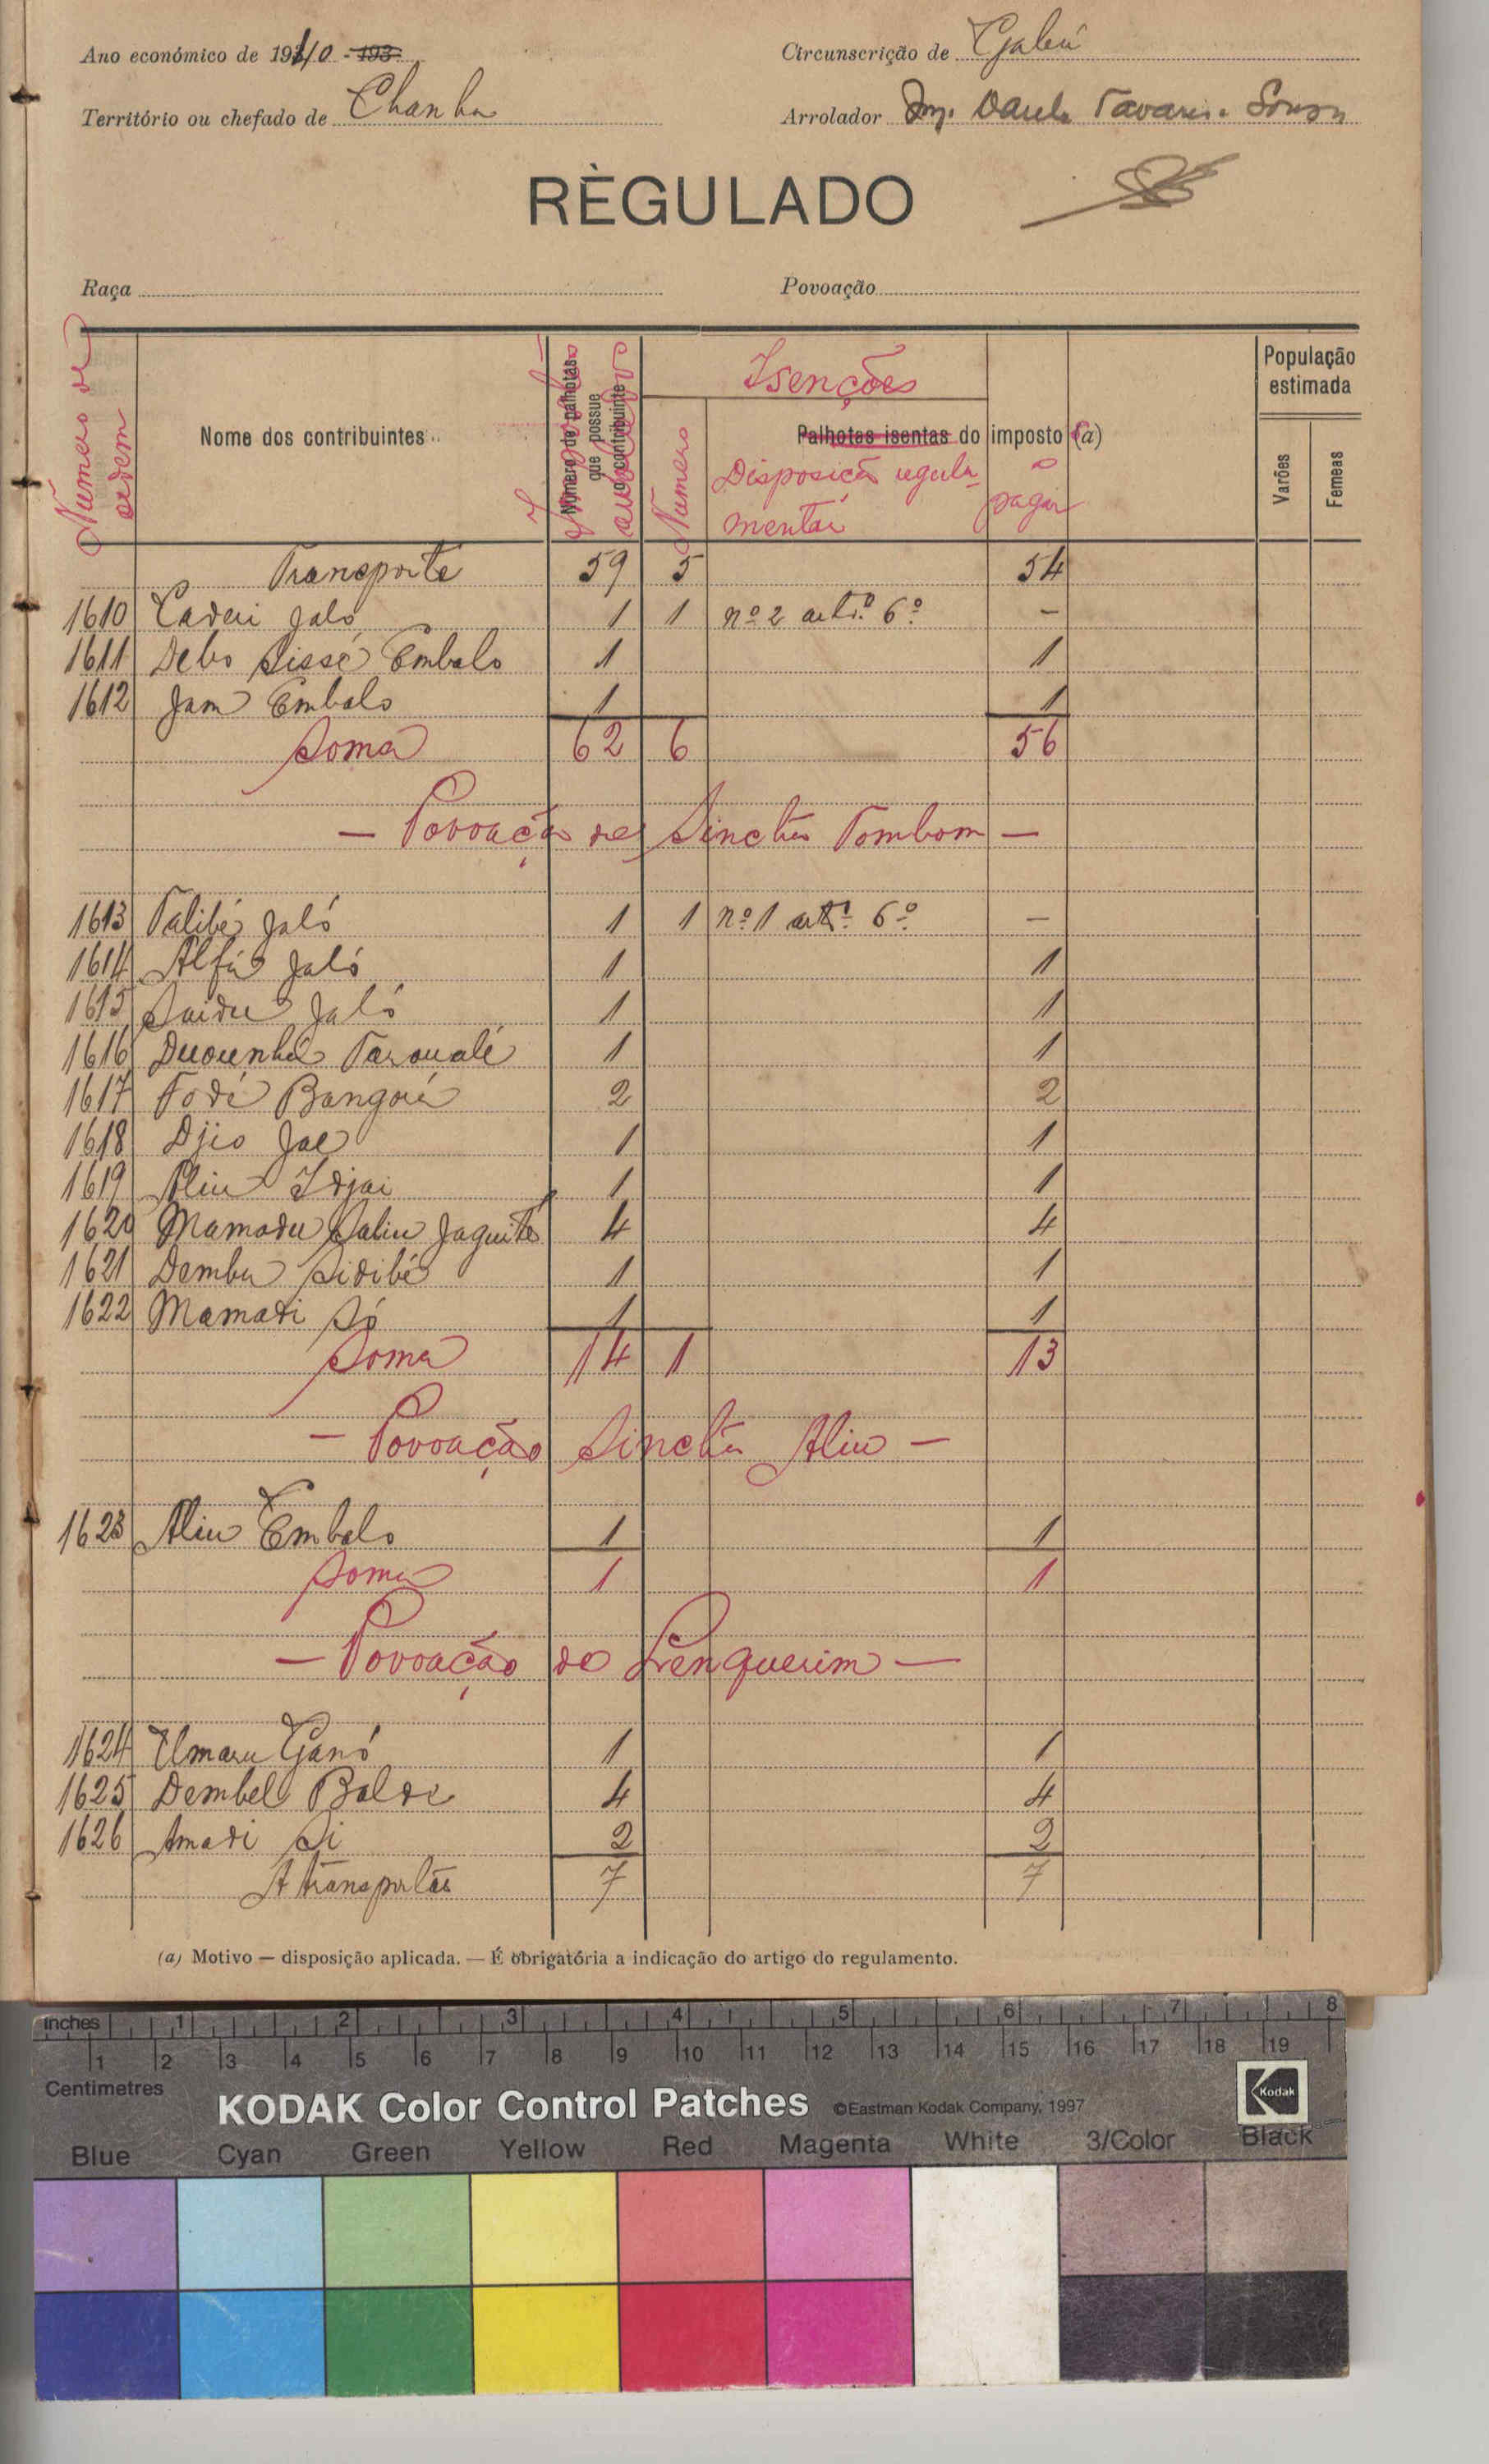 Ano económico de 1940 - 193
Circunscrição de Gabú
Território ou chefado de Chanha
Arrolador Tavares Sousa
RÈGULADO
Raça
Povoação
Numero de ordem
Nome dos contribuintes
Número de palhotas que possue o contribuinte
Isenções
Numero
Palhotas isentas do imposto (a)
Disposição regulamentar
a pagar
População estimada
Varões
Femeas
Transporte 59 5 54
1610 Jaló 1 1 nº 2 artº 6º -
1611 Debo Sissé Embalo 1 1
1612 Jam Embalo 1 1
Soma 62 6 56
— Povoação de Sinchã Tombom —
1613 Talibé Jaló 1 1 nº 1 artº 6º -
1614 Alfá Jaló 1 1
1615 Saidu Jaló 1 1
1616 1 1
1617 Fodé Bangoiá 2 2
1618 Djio Jae 1 1
1619 Aliu Idjai 1 1
1620 Mamadu Saliu Jaguité 4 4
1621 Demba Sidibé 1 1
1622 Mamadi Só 1 1
Soma 14 1 13
— Povoação Sinchã Aliu —
1623 Aliu Embalo 1 1
Soma 1 1
— Povoação de Lenquerim —
1624 Umaru Ganó 1 1
1625 Dembel Balde 4 4
1626 Amadi Si 2 2
A transportar 7 7
(a) Motivo — disposição aplicada. — É obrigatória a indicação do artigo do regulamento.
inches 1 2 3 4 5 6 7 8
1 2 3 4 5 6 7 8 9 10 11 12 13 14 15 16 17 18 19
Centimetres
KODAK Color Control Patches ©Eastman Kodak Company, 1997
Kodak
Blue Cyan Green Yellow Red Magenta White 3/Color Black